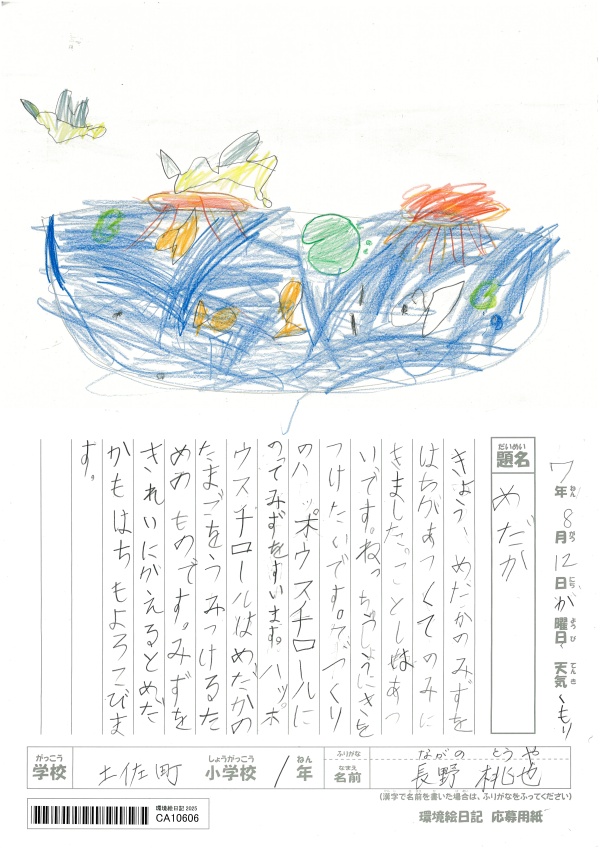 7年8月12日か曜日 天気くもり
ねん がつ にち ようび てんき
だいめい
題名 めだか
きょう、めだかのみずを
はちがあつくてのみに
きました。ことしはあつ
いです。ねっちゅうしょうにきを
つけたいです。てづくり
のハッポウスチロールに
のってみずをすいます。ハッポ
ウスチロールはめだかの
たまごをうみつけるた
めの ものです。みずを
きれいにかえるとめだ
かもはちもよろこびま
す。
がっこう しょうがっこう ねん ふりがな ながの とうや
学校 土佐町 小学校 1年 なまえ 名前 長野 桃也
(漢字で名前を書いた場合は、ふりがなをふってください)
環境絵日記 2025
CA10606
環境絵日記 応募用紙